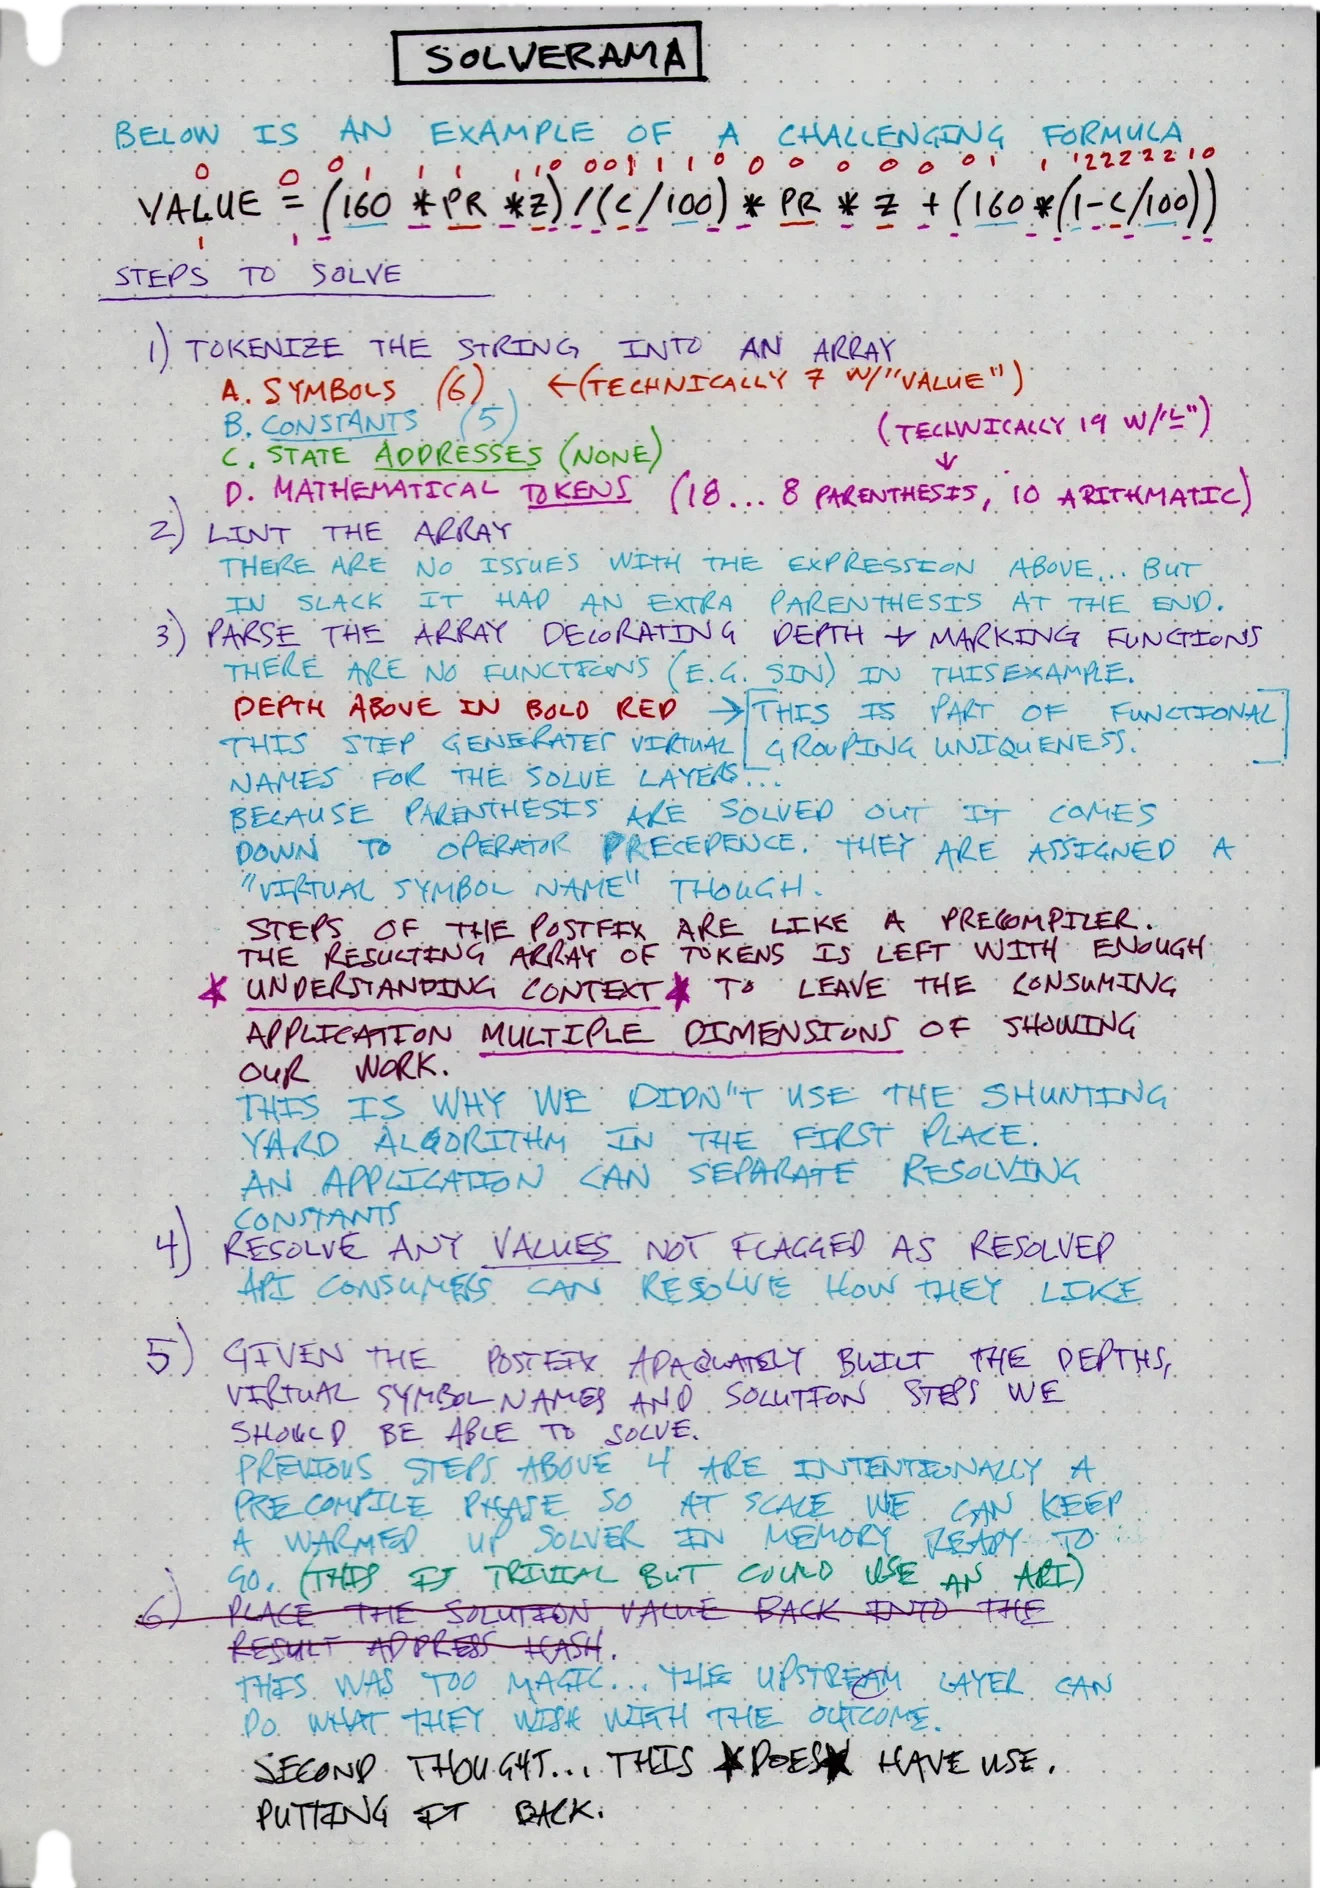 SOLVERAMA
BELOW IS AN EXAMPLE OF A CHALLENGING FORMULA
0 0 0 1 1 1 1 1 0 0 0 1 1 1 0 0 0 0 0 0 0 1 1 1 2 2 2 2 2 1 0
VALUE = (160 * PR * Z) / (C/100) * PR * Z + (160 * (1-C/100))
1 1
STEPS TO SOLVE
1) TOKENIZE THE STRING INTO AN ARRAY
A. SYMBOLS (6) ←(TECHNICALLY 7 W/"VALUE")
B. CONSTANTS (5)
(TECHNICALLY 19 W/"=")
↓
C. STATE ADDRESSES (NONE)
D. MATHEMATICAL TOKENS (18... 8 PARENTHESIS, 10 ARITHMATIC)
2) LINT THE ARRAY
THERE ARE NO ISSUES WITH THE EXPRESSION ABOVE... BUT
IN SLACK IT HAD AN EXTRA PARENTHESIS AT THE END.
3) PARSE THE ARRAY DECORATING DEPTH + MARKING FUNCTIONS
THERE ARE NO FUNCTIONS (E.G. SIN) IN THIS EXAMPLE.
DEPTH ABOVE IN BOLD RED → [THIS IS PART OF FUNCTIONAL
GROUPING UNIQUENESS.]
THIS STEP GENERATES VIRTUAL
NAMES FOR THE SOLVE LAYERS...
BECAUSE PARENTHESIS ARE SOLVED OUT IT COMES
DOWN TO OPERATOR PRECEDENCE. THEY ARE ASSIGNED A
"VIRTUAL SYMBOL NAME" THOUGH.
STEPS OF THE POSTFIX ARE LIKE A PRECOMPILER.
THE RESULTING ARRAY OF TOKENS IS LEFT WITH ENOUGH
* UNDERSTANDING CONTEXT * TO LEAVE THE CONSUMING
APPLICATION MULTIPLE DIMENSIONS OF SHOWING
OUR WORK.
THIS IS WHY WE DIDN"T USE THE SHUNTING
YARD ALGORITHM IN THE FIRST PLACE.
AN APPLICATION CAN SEPARATE RESOLVING
CONSTANTS
4) RESOLVE ANY VALUES NOT FLAGGED AS RESOLVED
API CONSUMERS CAN RESOLVE HOW THEY LIKE
5) GIVEN THE POSTFIX ADAQUATELY BUILT THE DEPTHS,
VIRTUAL SYMBOL NAMES AND SOLUTION STEPS WE
SHOULD BE ABLE TO SOLVE.
PREVIOUS STEPS ABOVE 4 ARE INTENTIONALLY A
PRECOMPILE PHASE SO AT SCALE WE CAN KEEP
A WARMED UP SOLVER IN MEMORY READY TO
GO. (THIS IS TRIVIAL BUT COULD USE AN API)
6) PLACE THE SOLUTION VALUE BACK INTO THE
RESULT ADDRESS HASH.
THIS WAS TOO MAGIC... THE UPSTREAM LAYER CAN
DO WHAT THEY WISH WITH THE OUTCOME.
SECOND THOUGHT... THIS *DOES* HAVE USE.
PUTTING IT BACK.